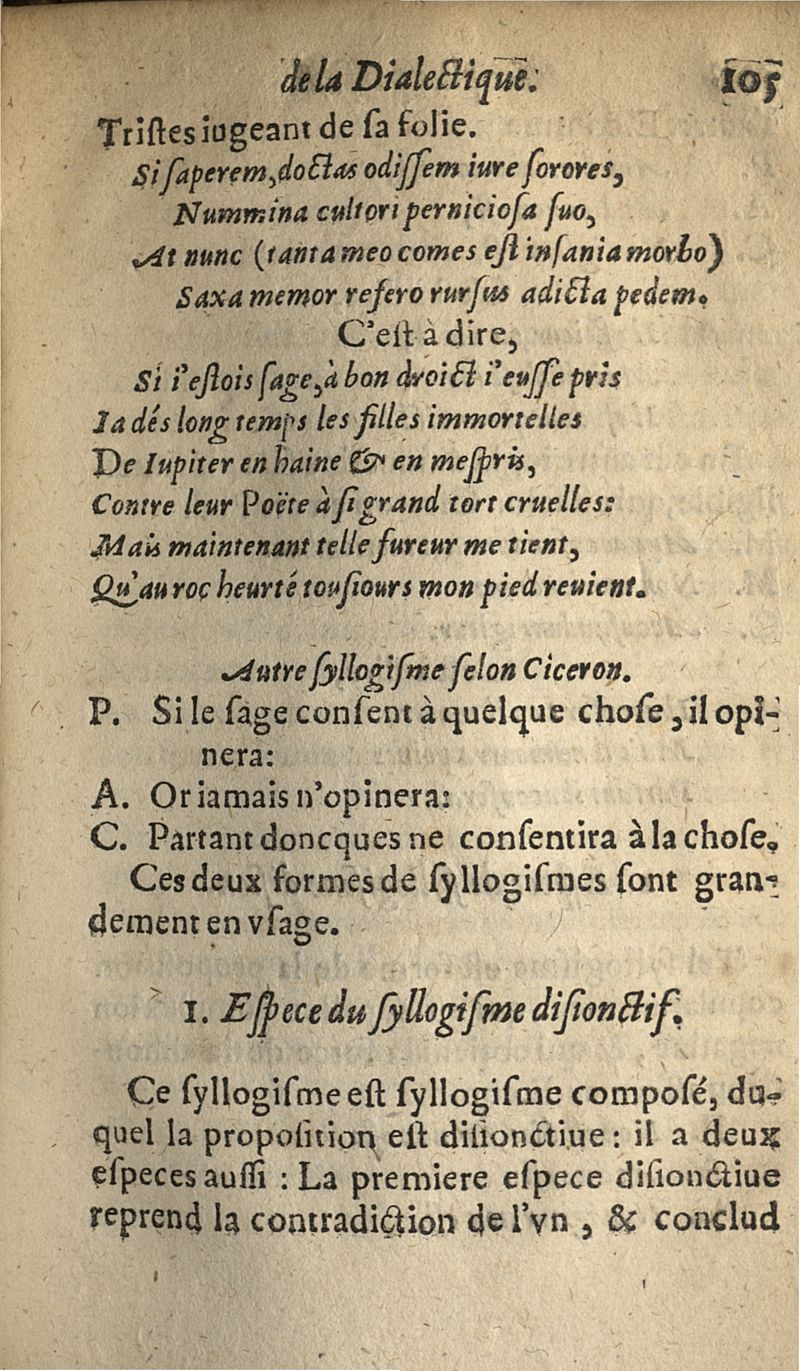 de la Dialectique. 105
Tristes iugeant de sa folie.
Si saperem, doctas odissem iure sorores,
Nummina cultori perniciosa suo,
At nunc (tanta meo comes est insania morbo)
Saxa memor refero rursus adicta pedem.
C'est à dire,
Si i'estois sage, à bon droict i'eusse pris
Ia dés long temps les filles immortelles
De Iupiter en haine & en mespris,
Contre leur Poëte à si grand tort cruelles:
Mais maintenant telle fureur me tient,
Qu'au roc heurté tousiours mon pied reuient.
Autre syllogisme selon Ciceron.
P. Si le sage consent à quelque chose, il opi-
nera:
A. Or iamais n'opinera:
C. Partant doncques ne consentira à la chose.
Ces deux formes de syllogismes sont gran-
dement en vsage.
1. Espece du syllogisme disionctif.
Ce syllogisme est syllogisme composé, du-
quel la proposition est disionctiue: il a deux
especes aussi : La premiere espece disionctiue
reprend la contradiction de l'vn, & conclud